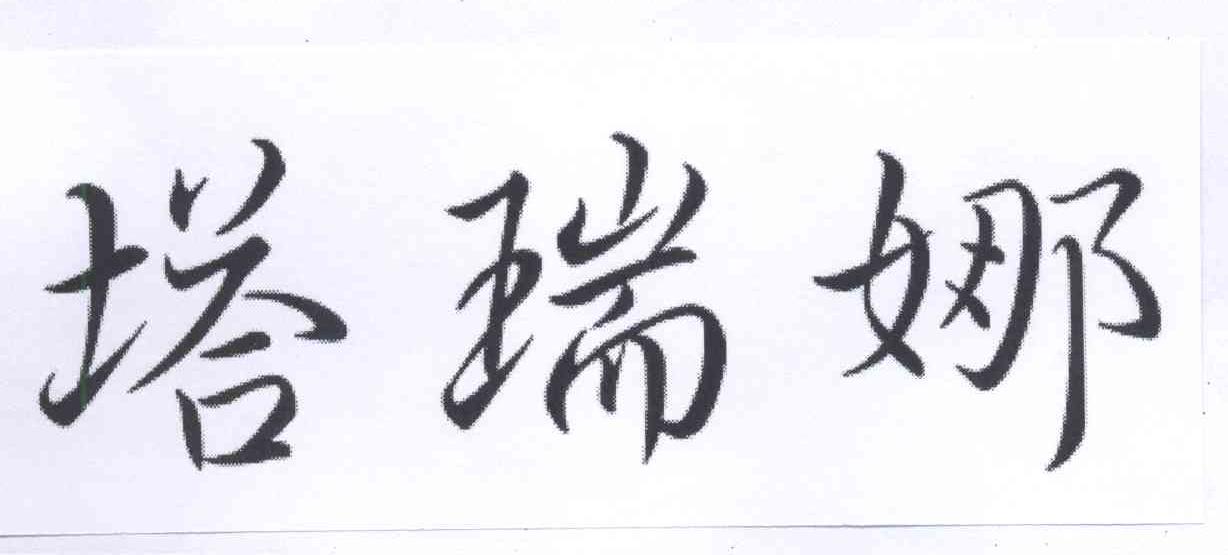 塔瑞娜